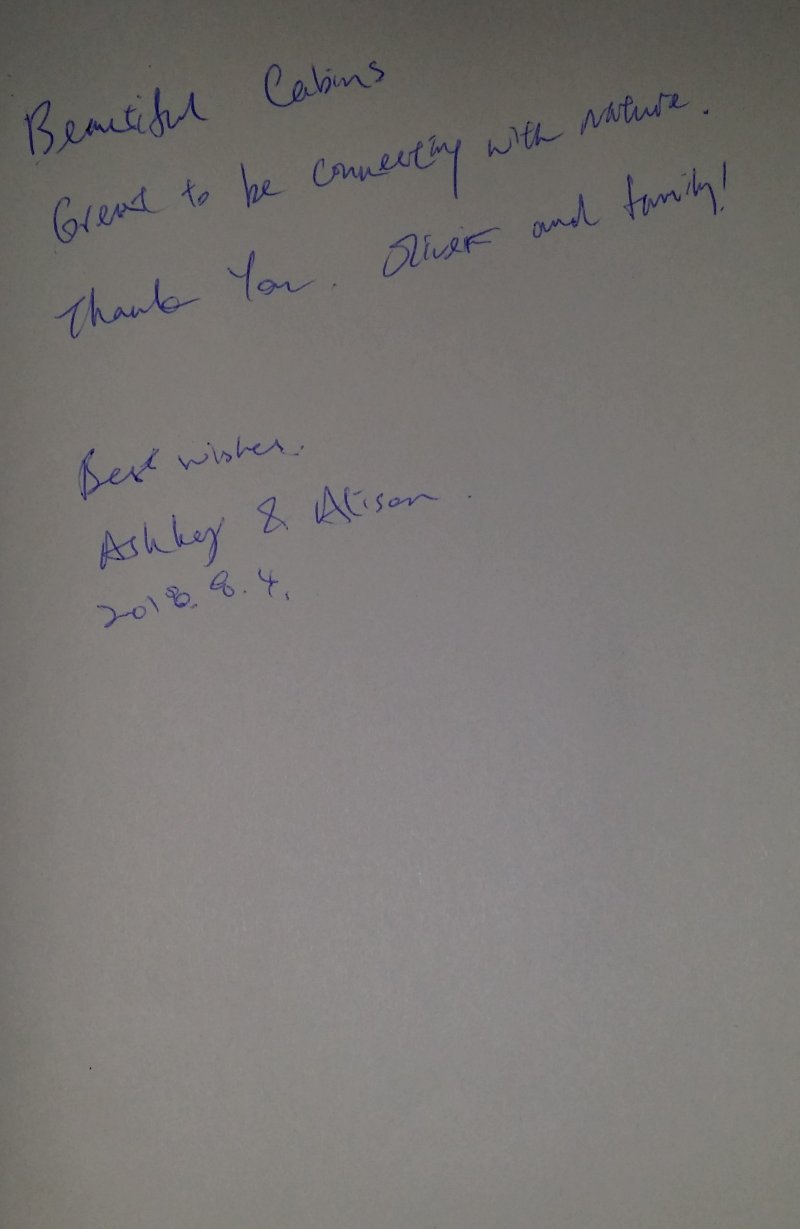 Beautiful Cabins
Great to be connecting with nature.
Thank You. Oliver and family!
Best wishes.
Ashley & Alison.
2018.8.4.